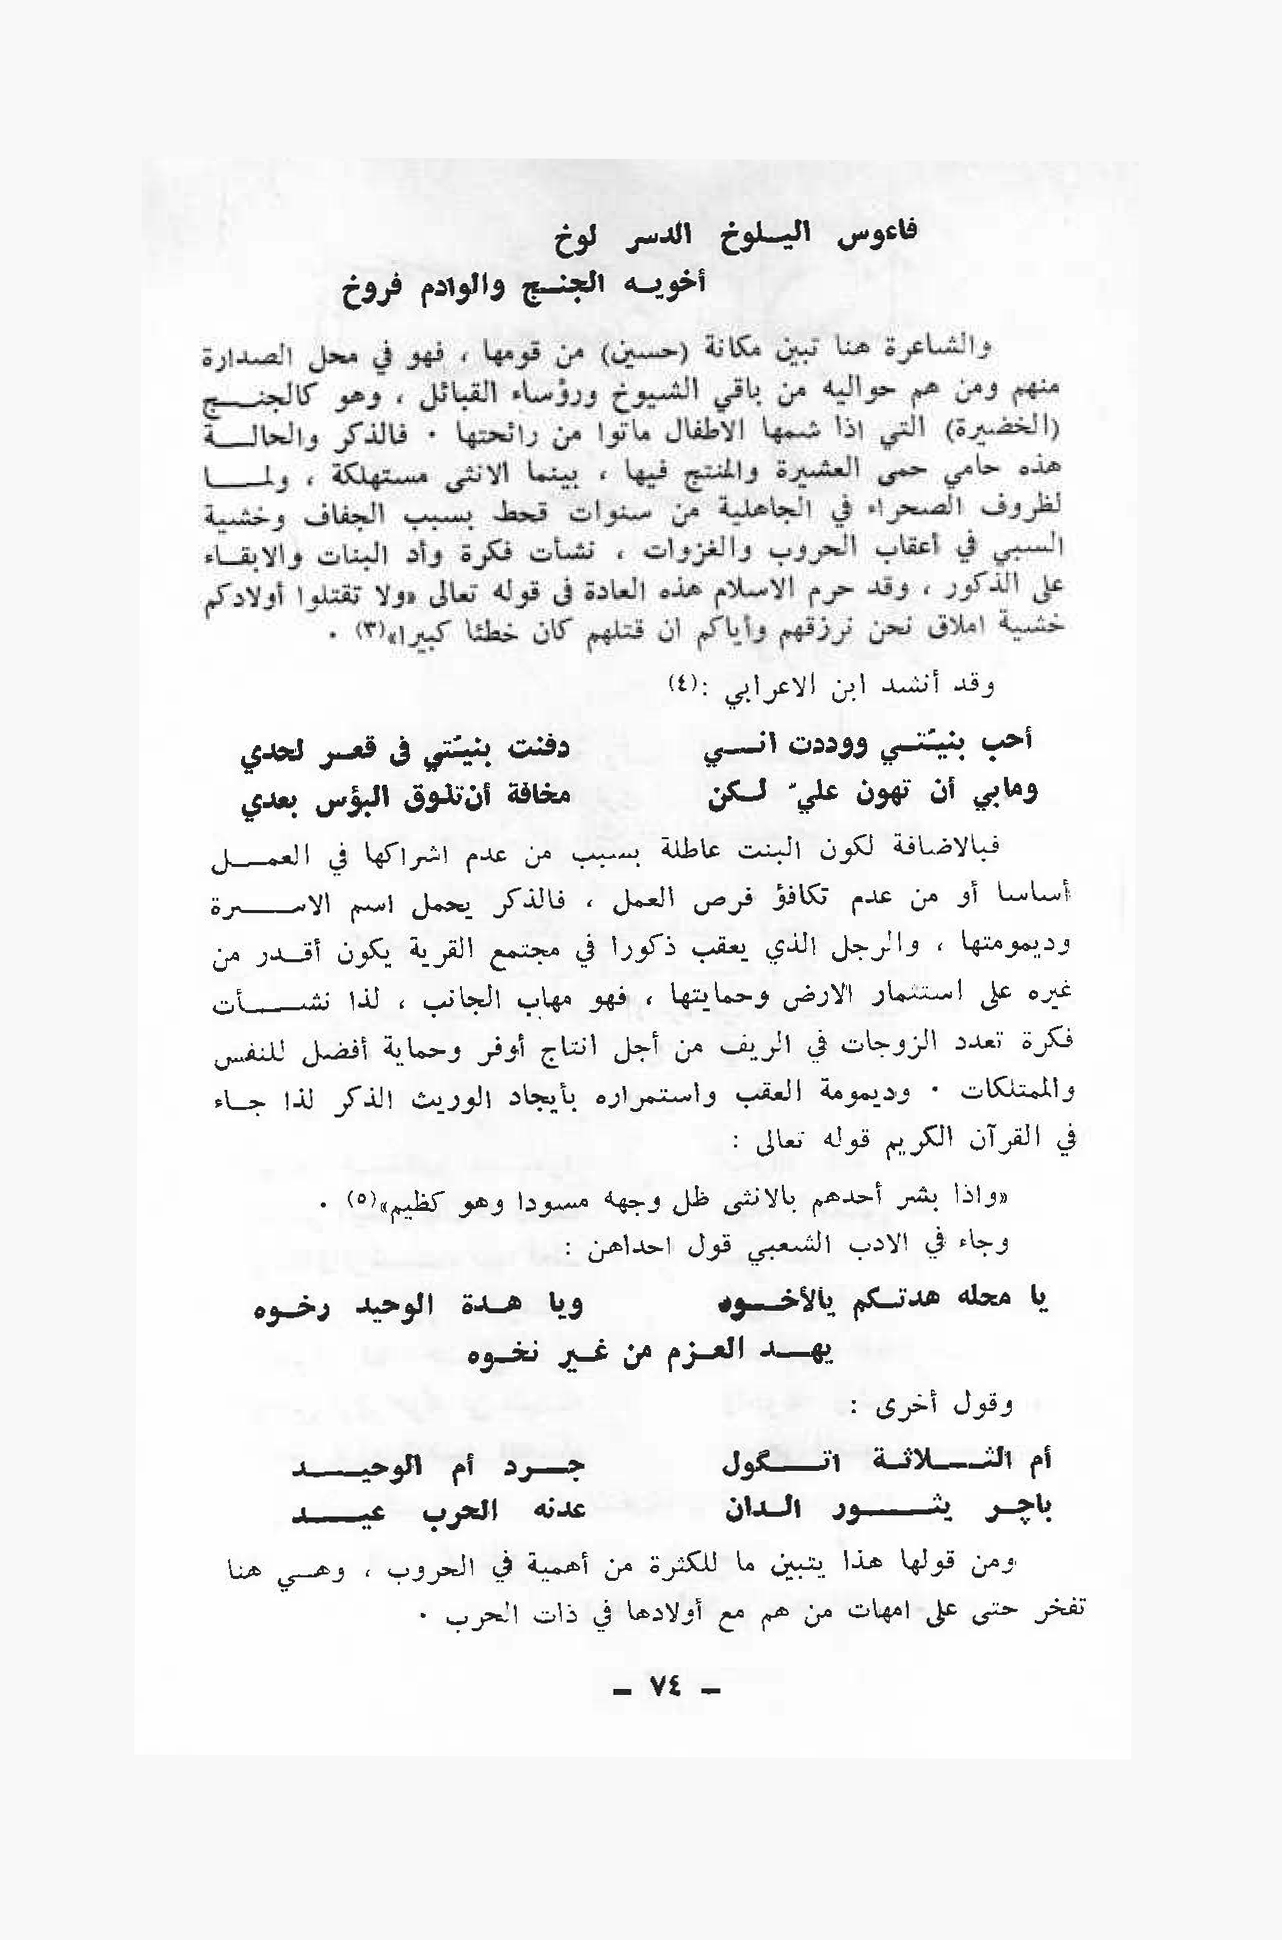 فاءوس اليلوخ الدسر لوخ
أخويه الجنج والوادم فروخ
والشاعرة هنا تبين مكانة (حسين) من قومها ، فهو في محل الصدارة
منهم ومن هم حواليه من باقي الشيوخ ورؤساء القبائل ، وهو كالجنج
(الخضيرة) التي اذا شمها الاطفال ماتوا من رائحتها . فالذكر والحالة
هذه حامي حمى العشيرة والمنتج فيها ، بينما الانثى مستهلكة ، ولما
لظروف الصحراء في الجاهلية من سنوات قحط بسبب الجفاف وخشية
السبي في أعقاب الحروب والغزوات ، نشأت فكرة وأد البنات والابقاء
على الذكور ، وقد حرم الاسلام هذه العادة فى قوله تعالى «ولا تقتلوا أولادكم
خشية املاق نحن نرزقهم وأياكم ان قتلهم كان خطئا كبيرا»(٣) .
وقد أنشد ابن الاعرابي :(٤)
أحب بنيّتي ووددت اني دفنت بنيّتي فى قعر لحدي
ومابي أن تهون عليّ لكن مخافة أن تذوق البؤس بعدي
فبالاضافة لكون البنت عاطلة بسبب من عدم اشراكها في العمل
أساسا أو من عدم تكافؤ فرص العمل ، فالذكر يحمل اسم الاسرة
وديمومتها ، والرجل الذي يعقب ذكورا في مجتمع القرية يكون أقدر من
غيره على استثمار الارض وحمايتها ، فهو مهاب الجانب ، لذا نشأت
فكرة تعدد الزوجات في الريف من أجل انتاج أوفر وحماية أفضل للنفس
والممتلكات . وديمومة العقب واستمراره بأيجاد الوريث الذكر لذا جاء
في القرآن الكريم قوله تعالى :
«واذا بشر أحدهم بالانثى ظل وجهه مسودا وهو كظيم»(٥) .
وجاء في الادب الشعبي قول احداهن :
يا محله هدتكم يالأخوه ويا هدة الوحيد رخوه
يهد العزم من غير نخوه
وقول أخرى :
أم الثلاثة اتگول جرد أم الوحيد
باچر يثور الدان عدنه الحرب عيد
ومن قولها هذا يتبين ما للكثرة من أهمية في الحروب ، وهي هنا
تفخر حتى على امهات من هم مع أولادها في ذات الحرب .
– ٧٤ –